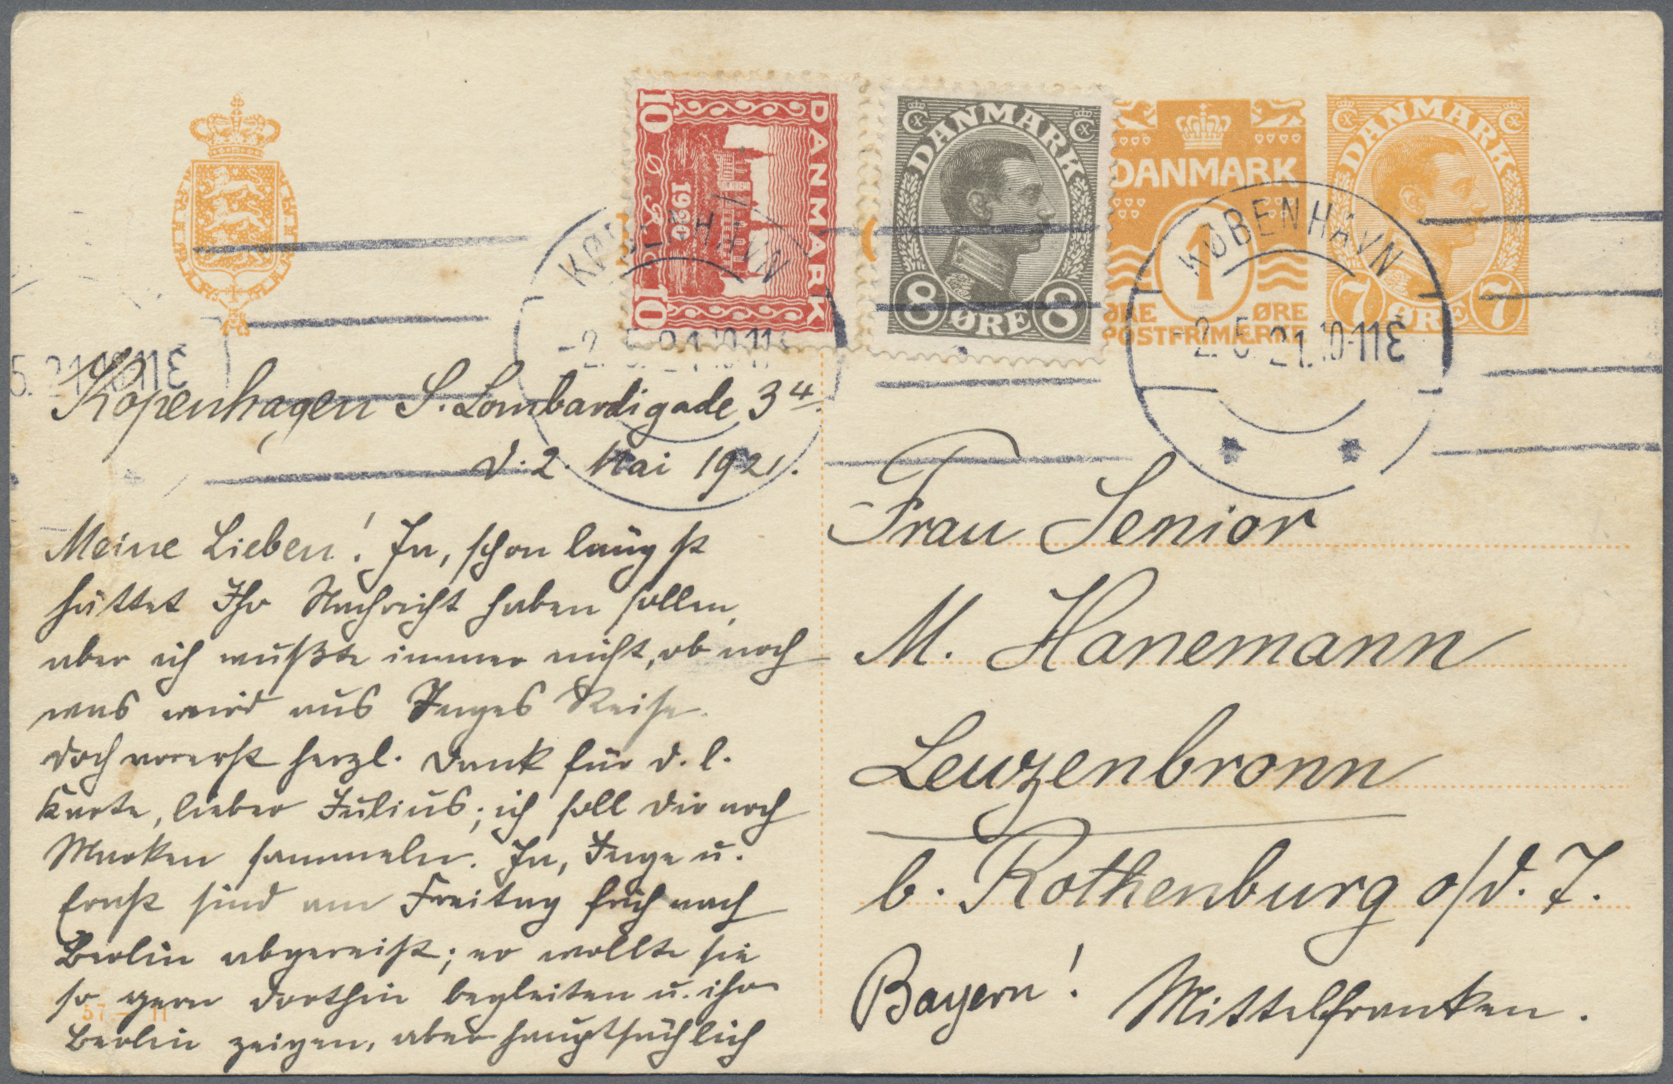 DANMARK
10 ØRE 10
1920
DANMARK
8 ØRE 8
DANMARK
1
ØRE ØRE
POSTFRIMÆRKE
DANMARK
7 ØRE 7
KØBENHAVN
-2.5.21.10-11E
KØBENHAVN
-2.5.21.10-11E
5.21.10-11E
Kopenhagen S. Lombardigade 3 4.
d. 2. Mai 1921.
Meine Lieben! Ja, schon längst
hättet Ihr Nachricht haben sollen,
aber ich wußte immer nicht, ob noch
was wird aus Inges Reise.
Doch vorerst herzl. Dank für d. l.
Karte, lieber Julius; ich soll Dir noch
Marken sammeln. Ja, Inge u.
Ernst sind am Freitag früh nach
Berlin abgereist; er wollte sie
so gern dorthin begleiten u. ihr
Berlin zeigen, aber hauptsächlich
57 - 11
Frau Senior
M. Hanemann
Leuzenbronn
b. Rothenburg o/d. T.
Bayern! Mittelfranken.